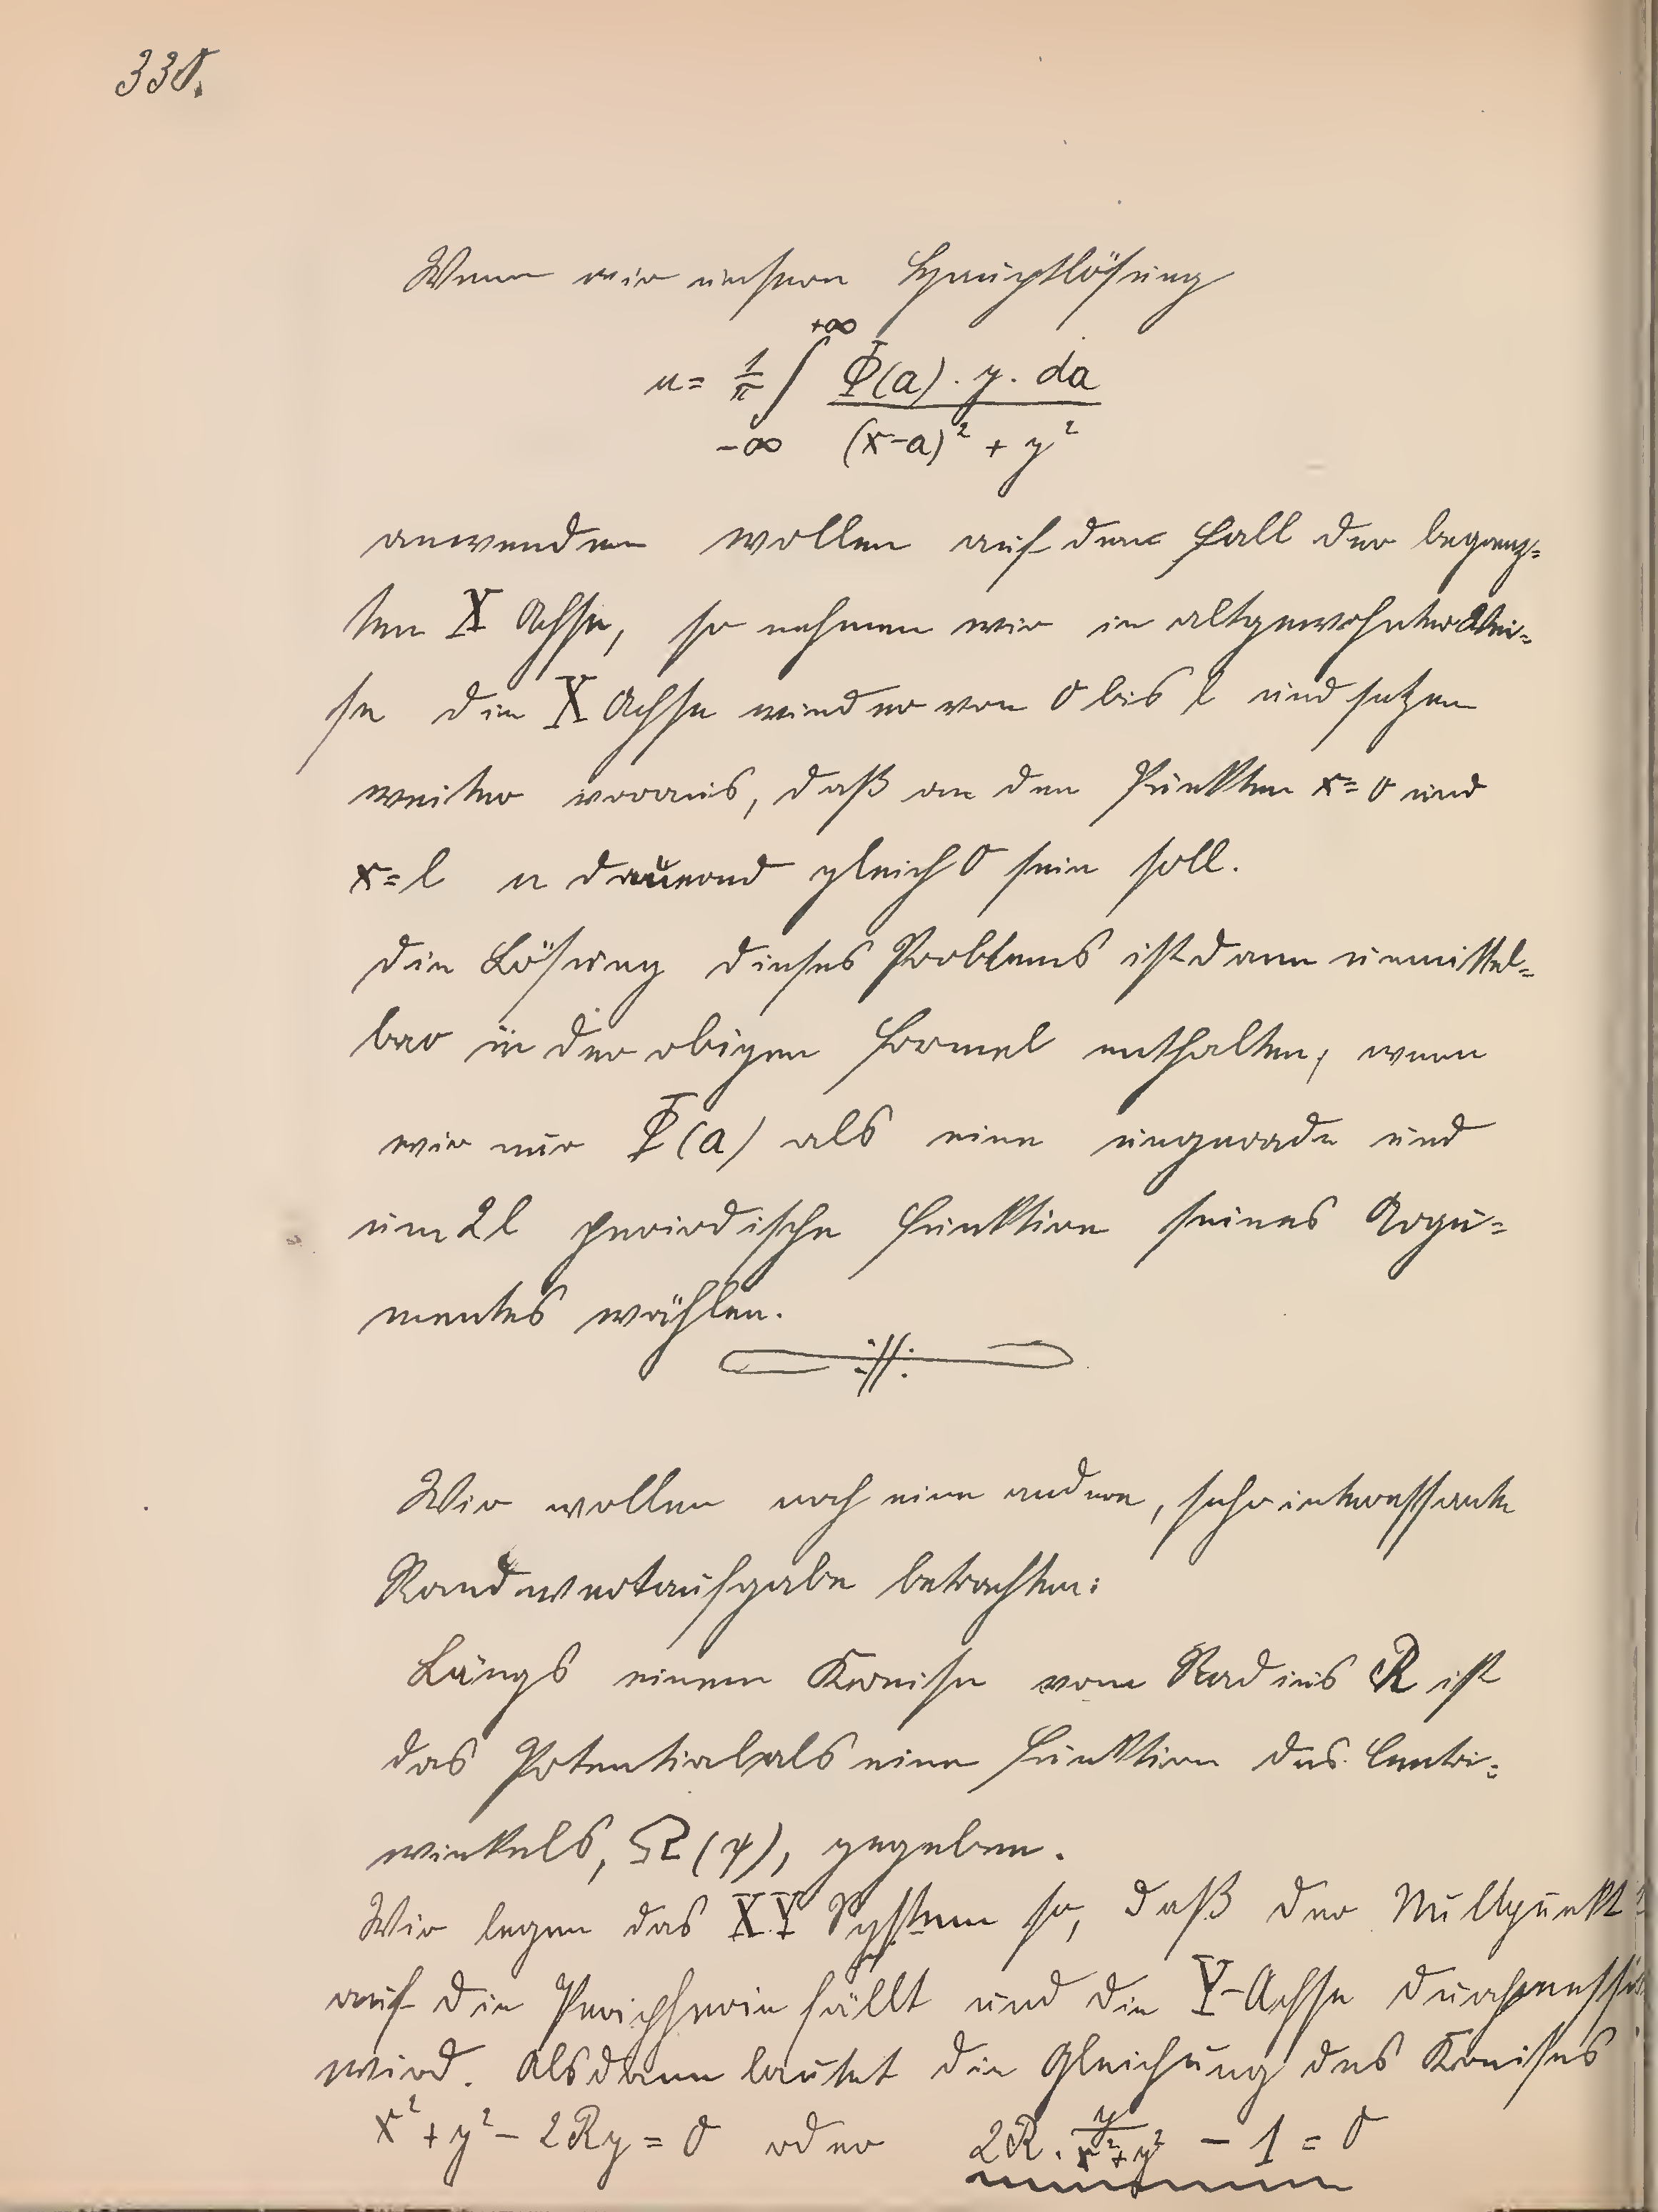 330.
Wenn wir unsere Hauptlösung
u = 1/π ∫_{-∞}^{+∞} Φ(a) · y · da / ((x-a)² + y²)
anwenden wollen auf den Fall der begrenz=
ten X Achse, so nehmen wir in altgewohnter Wei=
se die X Achse wieder von 0 bis l und setzen
weiter voraus, daß an den Punkten x=0 und
x=l u dauernd gleich 0 sein soll.
Die Lösung dieses Problems ist dann unmittel=
bar in der obigen Formel enthalten, wenn
wir nur Φ(a) als eine ungerade und
um 2l periodische Funktion seines Argu=
mentes wählen.
Wir wollen noch eine andere, sehr interessante
Randwertaufgabe betrachten:
Längs einem Kreise vom Radius R ist
das Potential als eine Funktion des Centri=
winkels, Ω(ψ), gegeben.
Wir legen das XY System so, daß der Nullpunkt
auf die Peripherie fällt und die Y-Achse
wird. Alsdann lautet die Gleichung des Kreises
x² + y² - 2Ry = 0 oder 2R · y/(x²+y²) - 1 = 0